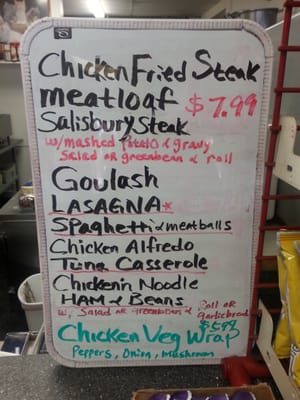 Chicken Fried Steak
meatloaf $7.99
Salisbury Steak
w/mashed potato & gravy
Salad OR greenbean & roll
Goulash
LASAGNA*
Spaghetti & meatballs
Chicken Alfredo
Tuna Casserole
Chickenin Noodle
HAM & Beans
w/ Salad OR greenbean & Roll OR
garlicbread
$5.99
Chicken Veg Wrap
Peppers, Onion, Mushroom